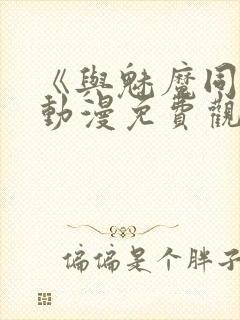 《與魅魔同
動漫免費觀
偏偏是个胖子